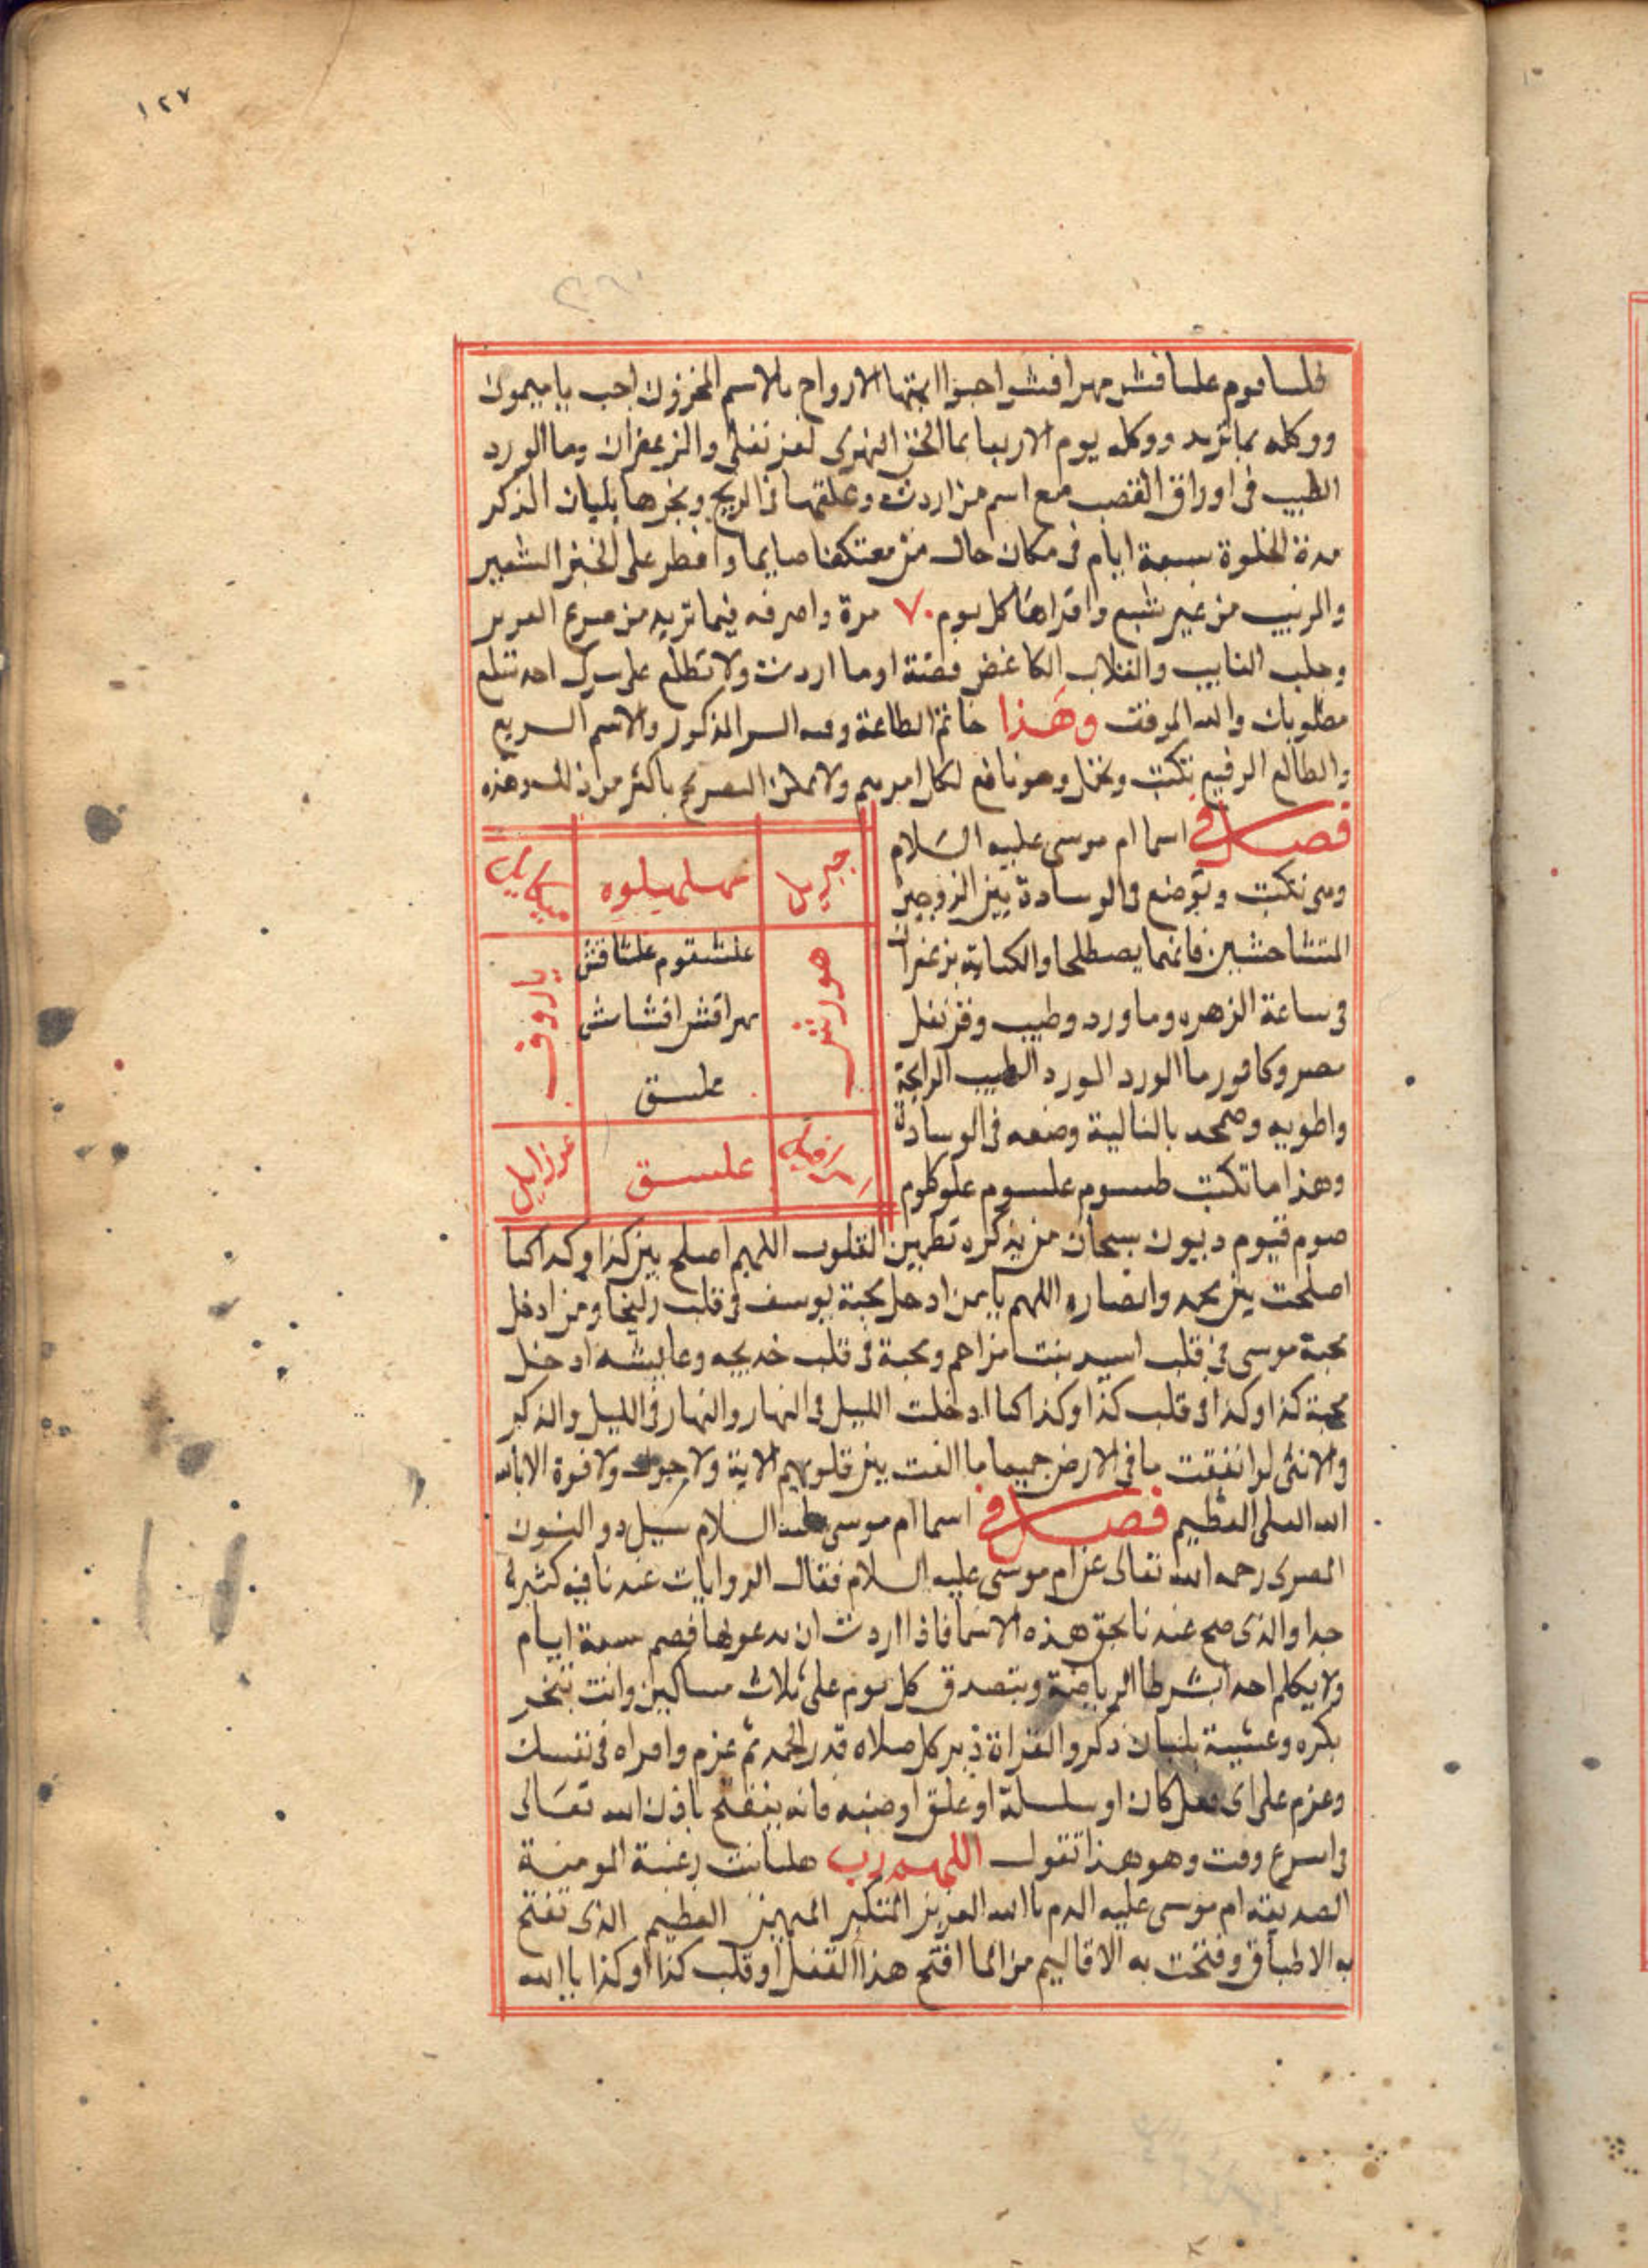 ١٢٧
علشاقش مهراقش اجيبوا ايتها الارواح بالاسم المخزون اجب يا ميمون
ووكله بما تريد ووكله يوم الاربعا بما القرنفل والزعفران وما الورد
الطيب فى اوراق القصب مع اسم من اردت وعلقها فى الريح وبخرها بلبان الذكر
مدة الخلوة سبعة ايام فى مكان خال معتكفا صايما وافطر على الخبز الشعير
والزبيب من غير شبع واقراها كل يوم ٧٠ مرة واصرفه فيما تريد من
وجلب الغايب الكاغض فضة او ما اردت ولا تطلع على سرك احد تبلغ
مطلوبك والله الموفق وهذا خاتم الطاعة وفيه السر المذكور والاسم السريع
والطالع الرفيع تكتب وتحمل وهو نافع لكل امر مهم ولا يمكن التصريح باكثر من ذلك وهذه
فصل فى اسما ام موسى عليه السلام
وهى تكتب وتوضع فى الوسادة بين الزوجين
المتشاحشين فانهما يصطلحا والكتابة بزعفران
فى ساعة الزهره وما ورد وطيب وقرنفل
مصر وكافور ما الورد الورد الطيب الرايحة
واطويه وضمخه بالغالية وضعه فى الوسادة
وهذا ما تكتب طسوم علسوم علوكلوم
جبريل
مهلمهيلوه
ميكاييل
هورش
علشقوم علشاقش
مهراقش اقشاش
علسق
ياروف
علسق
عزراييل
صوم قيوم ديوم سبحان من بذكره تطمين القلوب اللهم اصلح بين كذا وكذا كما
اصلحت بين محمد وانصاره اللهم يا من ادخل محبة يوسف فى قلب زليخا ومن ادخل
محبة موسى فى قلب اسيه بنت مزاحم ومحبة فى قلب خديجه وعايشه ادخل
محبة كذا وكذا فى قلب كذا وكذا كما ادخلت الليل فى النهار والنهار فى الليل والذكر
والانثى لو انفقت ما فى الارض جميعا ما الفت بين قلوبهم الاية ولا حول ولا قوة الا بالله
الله العلى العظيم فصل فى اسما ام موسى عليه السلام سيل ذو النون
المصرى رحمه الله تعالى عن ام موسى عليه السلام فقال الروايات عندنا فيه كثيرة
جدا والذى صح عندنا بحق هذه الاسما فاذا اردت ان تدعو بها فصم سبعة ايام
ولا يكلم احد بشرط الرياضة وتتصدق كل يوم على ثلاث مساكين وانت تبخر
بكره وعشية بلبان ذكر والقراة دبر كل صلاه قدر الحمد ثم عزم واقراه فى نفسك
وعزم على اى قفل كان او سلسلة او غلق او ضبه فانه ينفتح باذن الله تعالى
فى اسرع وقت وهو هذا تقول اللهم رب هلبانت رغبة المومنة
الصديقة ام موسى عليه السلام يا الله العزيز المتكبر المهيمن العظيم الذى تفتح
به الاطباق وفتحت به الاقاليم من الما افتح هذا القفل او قلب كذا او كذا يا الله